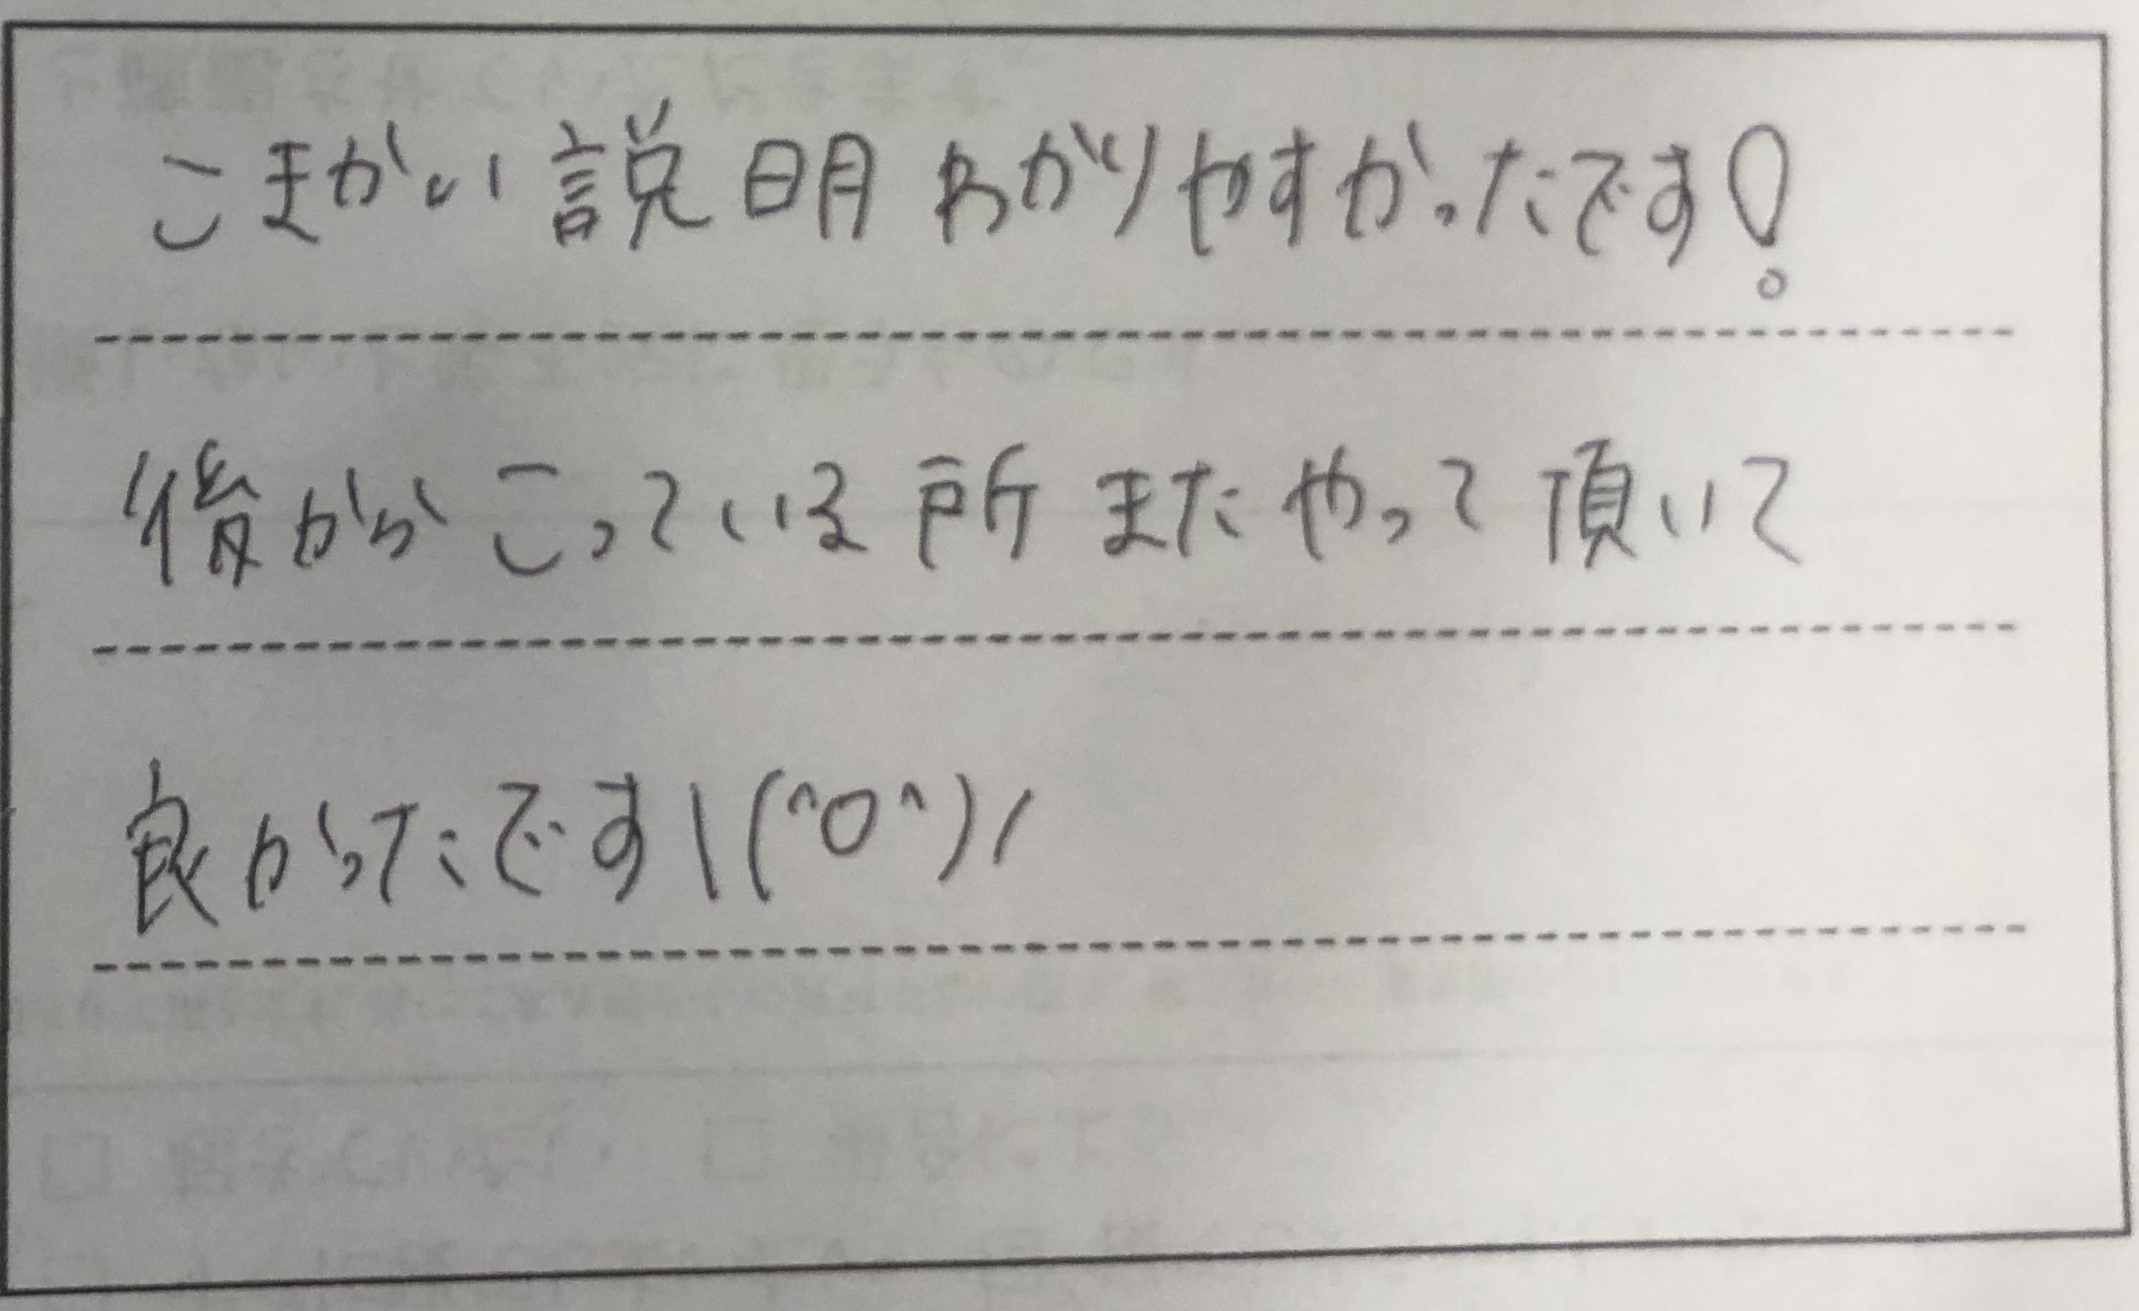 こまかい説明わかりやすかったです!
後からこっている所またやって頂いて
良かったです\(^o^)/